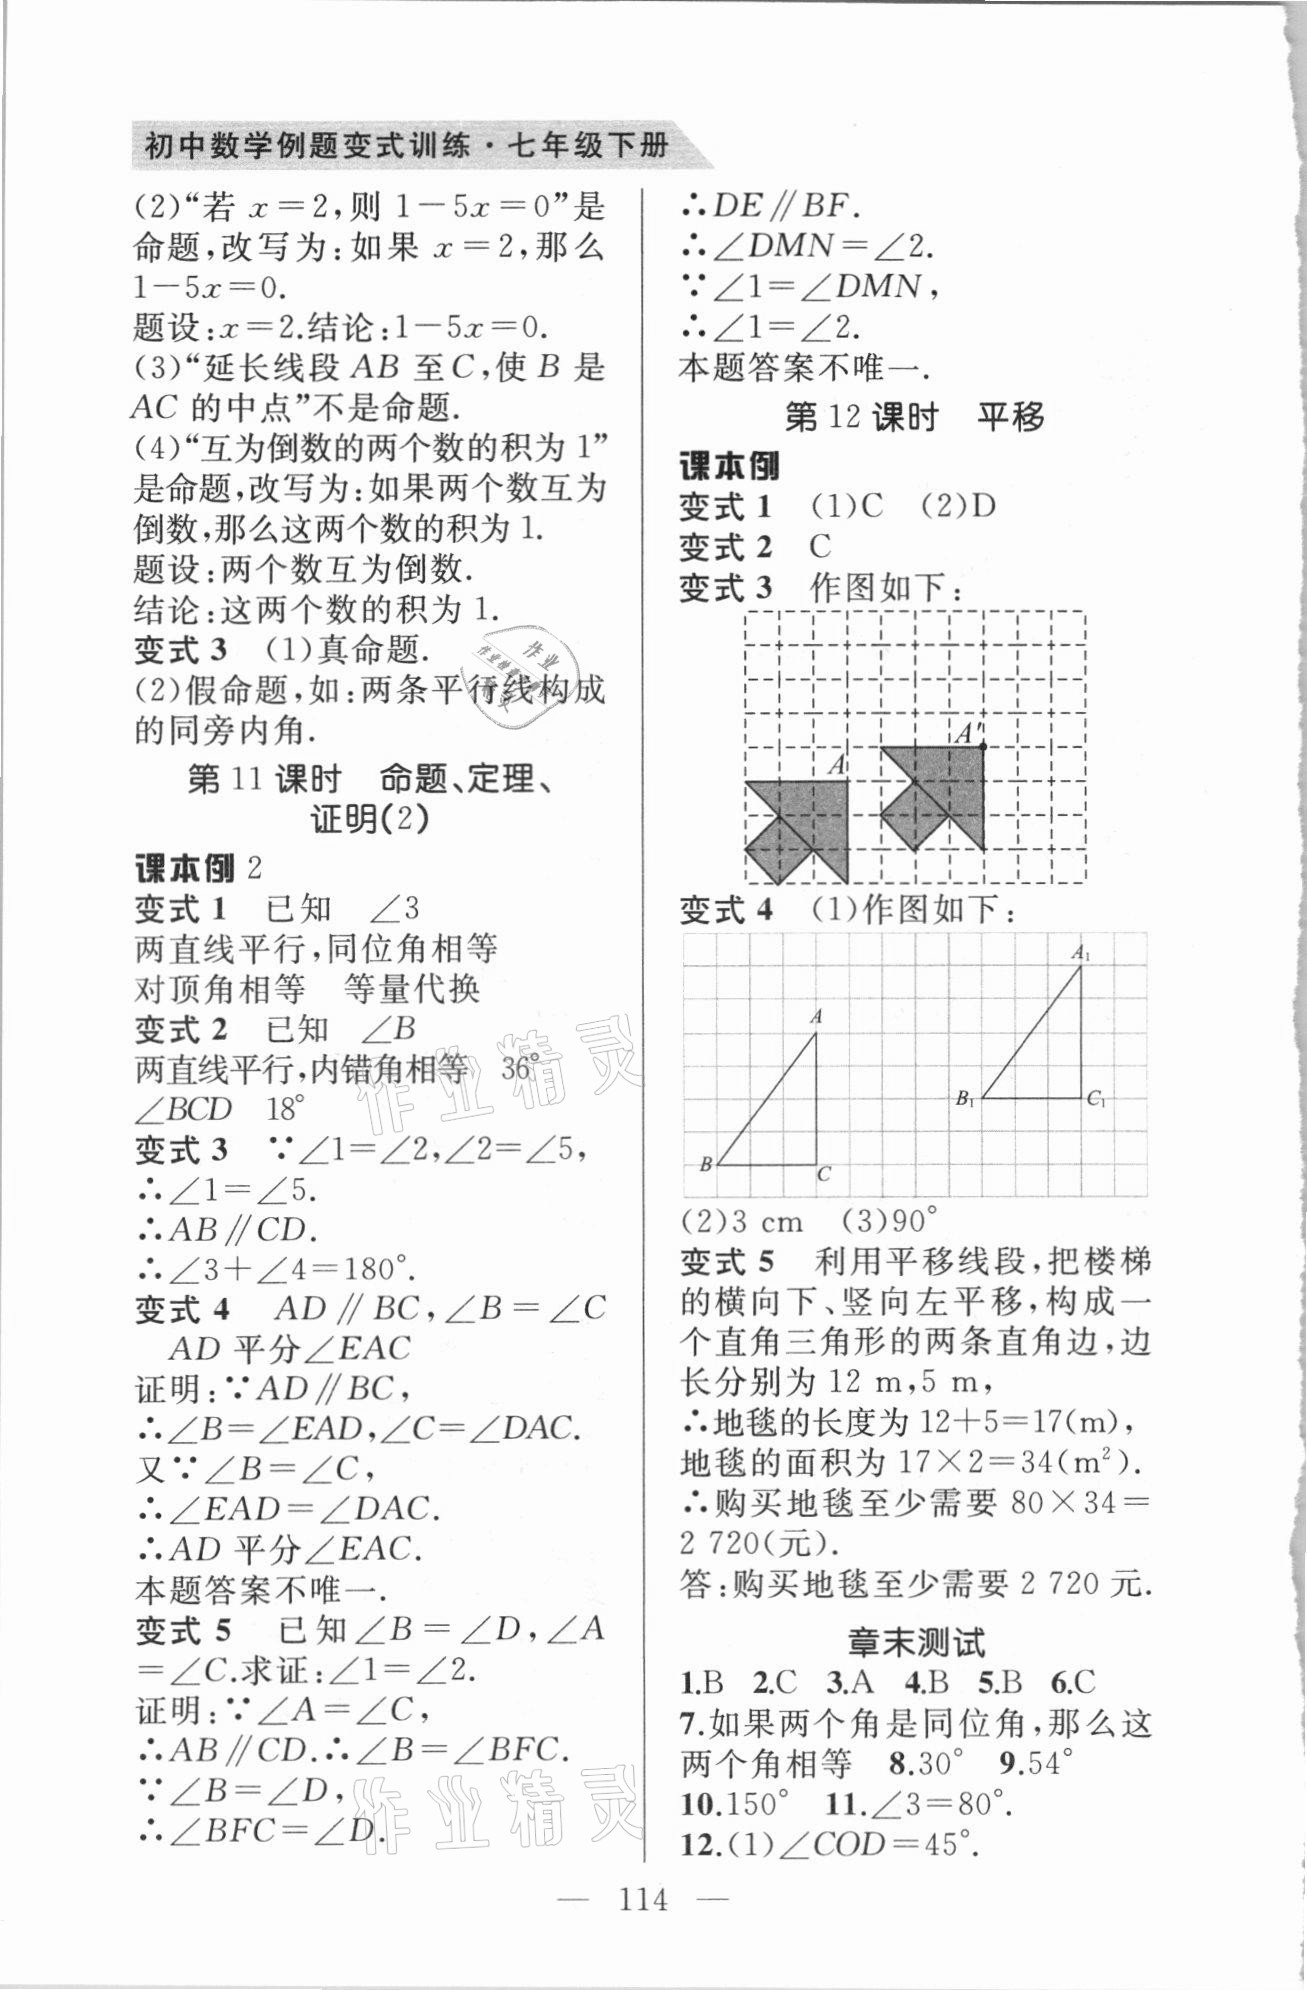 初中数学例题变式训练·七年级下册
(2)“若 x=2,则 1-5x=0”是
命题,改写为:如果 x=2,那么
1-5x=0.
题设:x=2.结论:1-5x=0.
(3)“延长线段 AB 至C,使 B 是
AC 的中点”不是命题.
(4)“互为倒数的两个数的积为 1”
是命题,改写为:如果两个数互为
倒数,那么这两个数的积为 1.
题设:两个数互为倒数.
结论:这两个数的积为 1.
变式 3 (1)真命题.
(2)假命题,如:两条平行线构成
的同旁内角.
第 11 课时 命题、定理、
证明(2)
课本例 2
变式 1 已知 ∠3
两直线平行,同位角相等
对顶角相等 等量代换
变式 2 已知 ∠B
两直线平行,内错角相等 36°
∠BCD 18°
变式 3 ∵∠1=∠2,∠2=∠5,
∴∠1=∠5.
∴AB∥CD.
∴∠3+∠4=180°.
变式 4 AD∥BC,∠B=∠C
AD 平分∠EAC
证明:∵AD∥BC,
∴∠B=∠EAD,∠C=∠DAC.
又∵∠B=∠C,
∴∠EAD=∠DAC.
∴AD 平分∠EAC.
本题答案不唯一.
变式 5 已知∠B=∠D,∠A
=∠C.求证:∠1=∠2.
证明:∵∠A=∠C,
∴AB∥CD.∴∠B=∠BFC.
∵∠B=∠D,
∴∠BFC=∠D.
∴DE∥BF.
∴∠DMN=∠2.
∵∠1=∠DMN,
∴∠1=∠2.
本题答案不唯一.
第 12 课时 平移
课本例
变式 1 (1)C (2)D
变式 2 C
变式 3 作图如下:
A′
A
变式 4 (1)作图如下:
A₁
A
B₁ C₁
B C
(2)3 cm (3)90°
变式 5 利用平移线段,把楼梯
的横向下、竖向左平移,构成一
个直角三角形的两条直角边,边
长分别为 12 m,5 m,
∴地毯的长度为 12+5=17(m),
地毯的面积为 17×2=34(m²).
∴购买地毯至少需要 80×34=
2 720(元).
答:购买地毯至少需要 2 720 元.
章末测试
1.B 2.C 3.A 4.B 5.B 6.C
7.如果两个角是同位角,那么这
两个角相等 8.30° 9.54°
10.150° 11.∠3=80°.
12.(1)∠COD=45°.
— 114 —
作业精灵
作业精灵